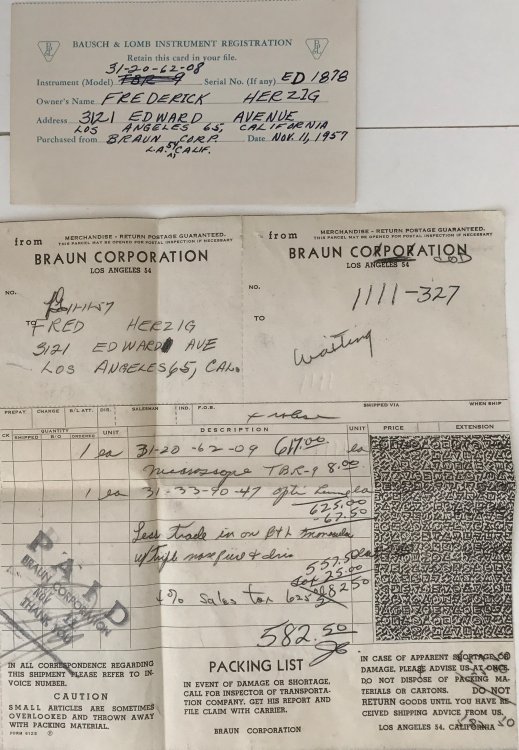 BAUSCH & LOMB INSTRUMENT REGISTRATION
Retain this card in your file.
31-20-62-08
Instrument (Model) TBR-9 Serial No. (If any) ED 1878
Owner's Name FREDERICK HERZIG
Address 3121 EDWARD AVENUE
LOS ANGELES 65, CALIFORNIA
Purchased from BRAUN CORP. Date NOV. 11, 1957
L.A. 54 CALIF.
from MERCHANDISE - RETURN POSTAGE GUARANTEED.
THIS PARCEL MAY BE OPENED FOR POSTAL INSPECTION IF NECESSARY
BRAUN CORPORATION
LOS ANGELES 54
NO.
11-11-57
TO FRED HERZIG
3121 EDWARD AVE
LOS ANGELES 65, CAL.
from MERCHANDISE - RETURN POSTAGE GUARANTEED.
THIS PARCEL MAY BE OPENED FOR POSTAL INSPECTION IF NECESSARY
BRAUN CORPORATION
LOS ANGELES 54
NO.
1111-327
TO
Waiting
1111
PREPAY CHARGE B/L ATT. DIS. SALESMAN IND. F.O.B. SHIPPED VIA WHEN SHIP
CK QUANTITY SHIPPED B/O ORDERED UNIT DESCRIPTION UNIT PRICE EXTENSION
1 ea 31-20-62-09 617.00 ea
microscope TBR-9 8.00
1 ea 31-33-90-47 ea
625.00
-67.50
Less trade in on
557.50
25.00
582.50
4% Sales tax 625.00
582.50
PAID
BRAUN CORPORATION
NOV
THANK YOU
IN ALL CORRESPONDENCE REGARDING
THIS SHIPMENT PLEASE REFER TO IN-
VOICE NUMBER.
CAUTION
SMALL ARTICLES ARE SOMETIMES
OVERLOOKED AND THROWN AWAY
WITH PACKING MATERIAL.
FORM 612S
PACKING LIST
IN EVENT OF DAMAGE OR SHORTAGE,
CALL FOR INSPECTOR OF TRANSPORTA-
TION COMPANY. GET HIS REPORT AND
FILE CLAIM WITH CARRIER.
BRAUN CORPORATION
IN CASE OF APPARENT SHORTAGE OR
DAMAGE, PLEASE ADVISE US AT ONCE.
DO NOT DISPOSE OF PACKING MA-
TERIALS OR CARTONS. DO NOT
RETURN GOODS UNTIL YOU HAVE RE-
CEIVED SHIPPING ADVICE FROM US.
LOS ANGELES 54, CALIFORNIA